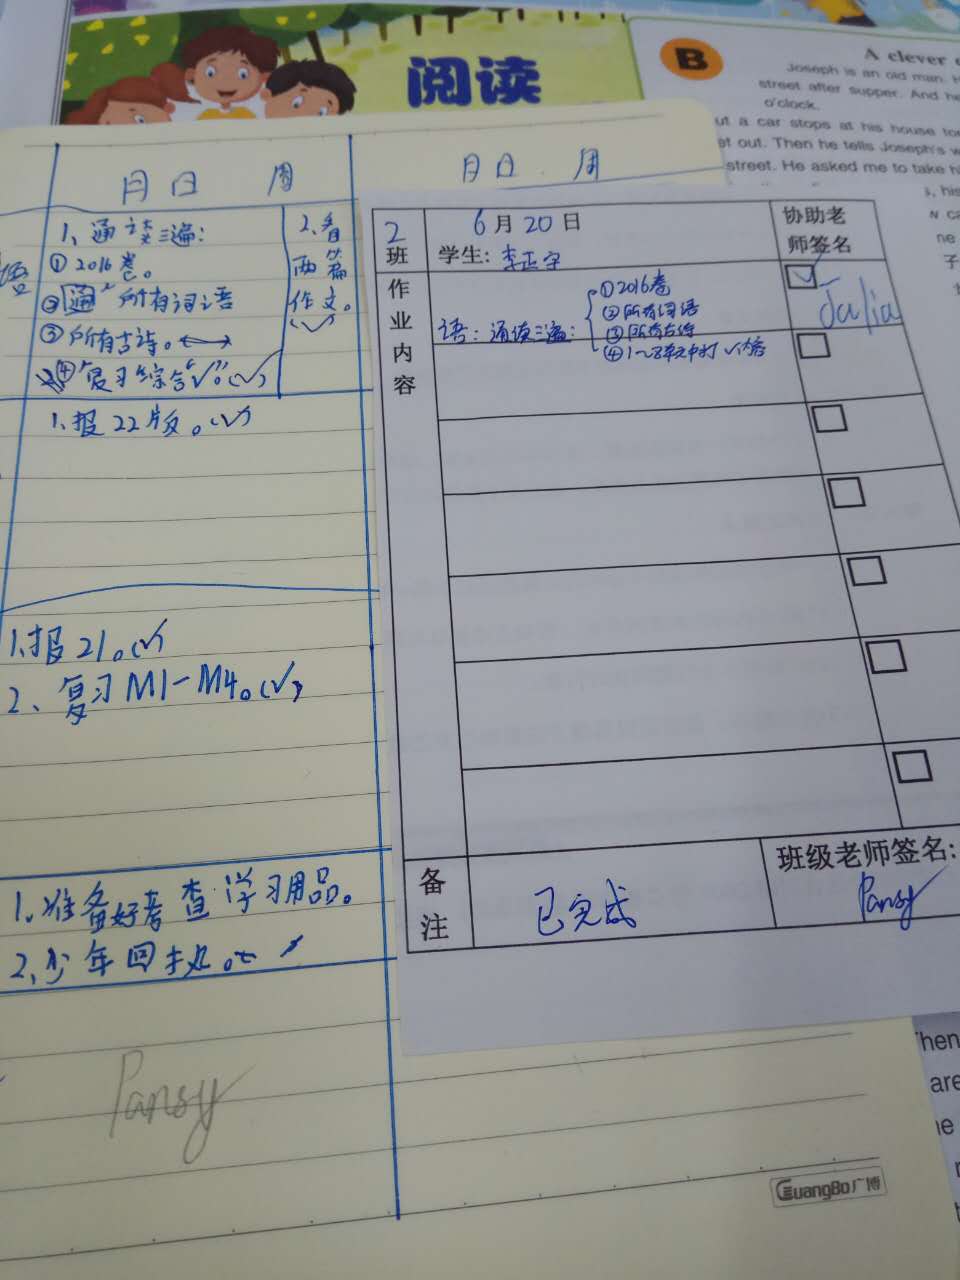 阅读
B
A clever
Joseph is an old man. H
street after supper. And he
o'clock.
ut a car stops at his house to
et out. Then he tells Joseph's w
street. He asked me to take h
, his
月日 周
月日 周
语
1、通读三遍:
①2016卷。
②通 所有词语
③所有古诗。
④"复习综合"√。(√)
2、看
两篇
作文。
(√)
1.报22版。(√)
1.报21。(√)
2、复习M1-M4。(√)
1.准备好考查学习用品。
2.少年回执。
Pansy
GuangBo广博
2
班
6月20日
学生:李正宇
协助老
师签名
作
业
内
容
语:通读三遍:
①2016卷
②所有词语
③所有古诗
④1~8单元中打√内容
Julia
备
注
已完成
班级老师签名:
Pansy
Then
are